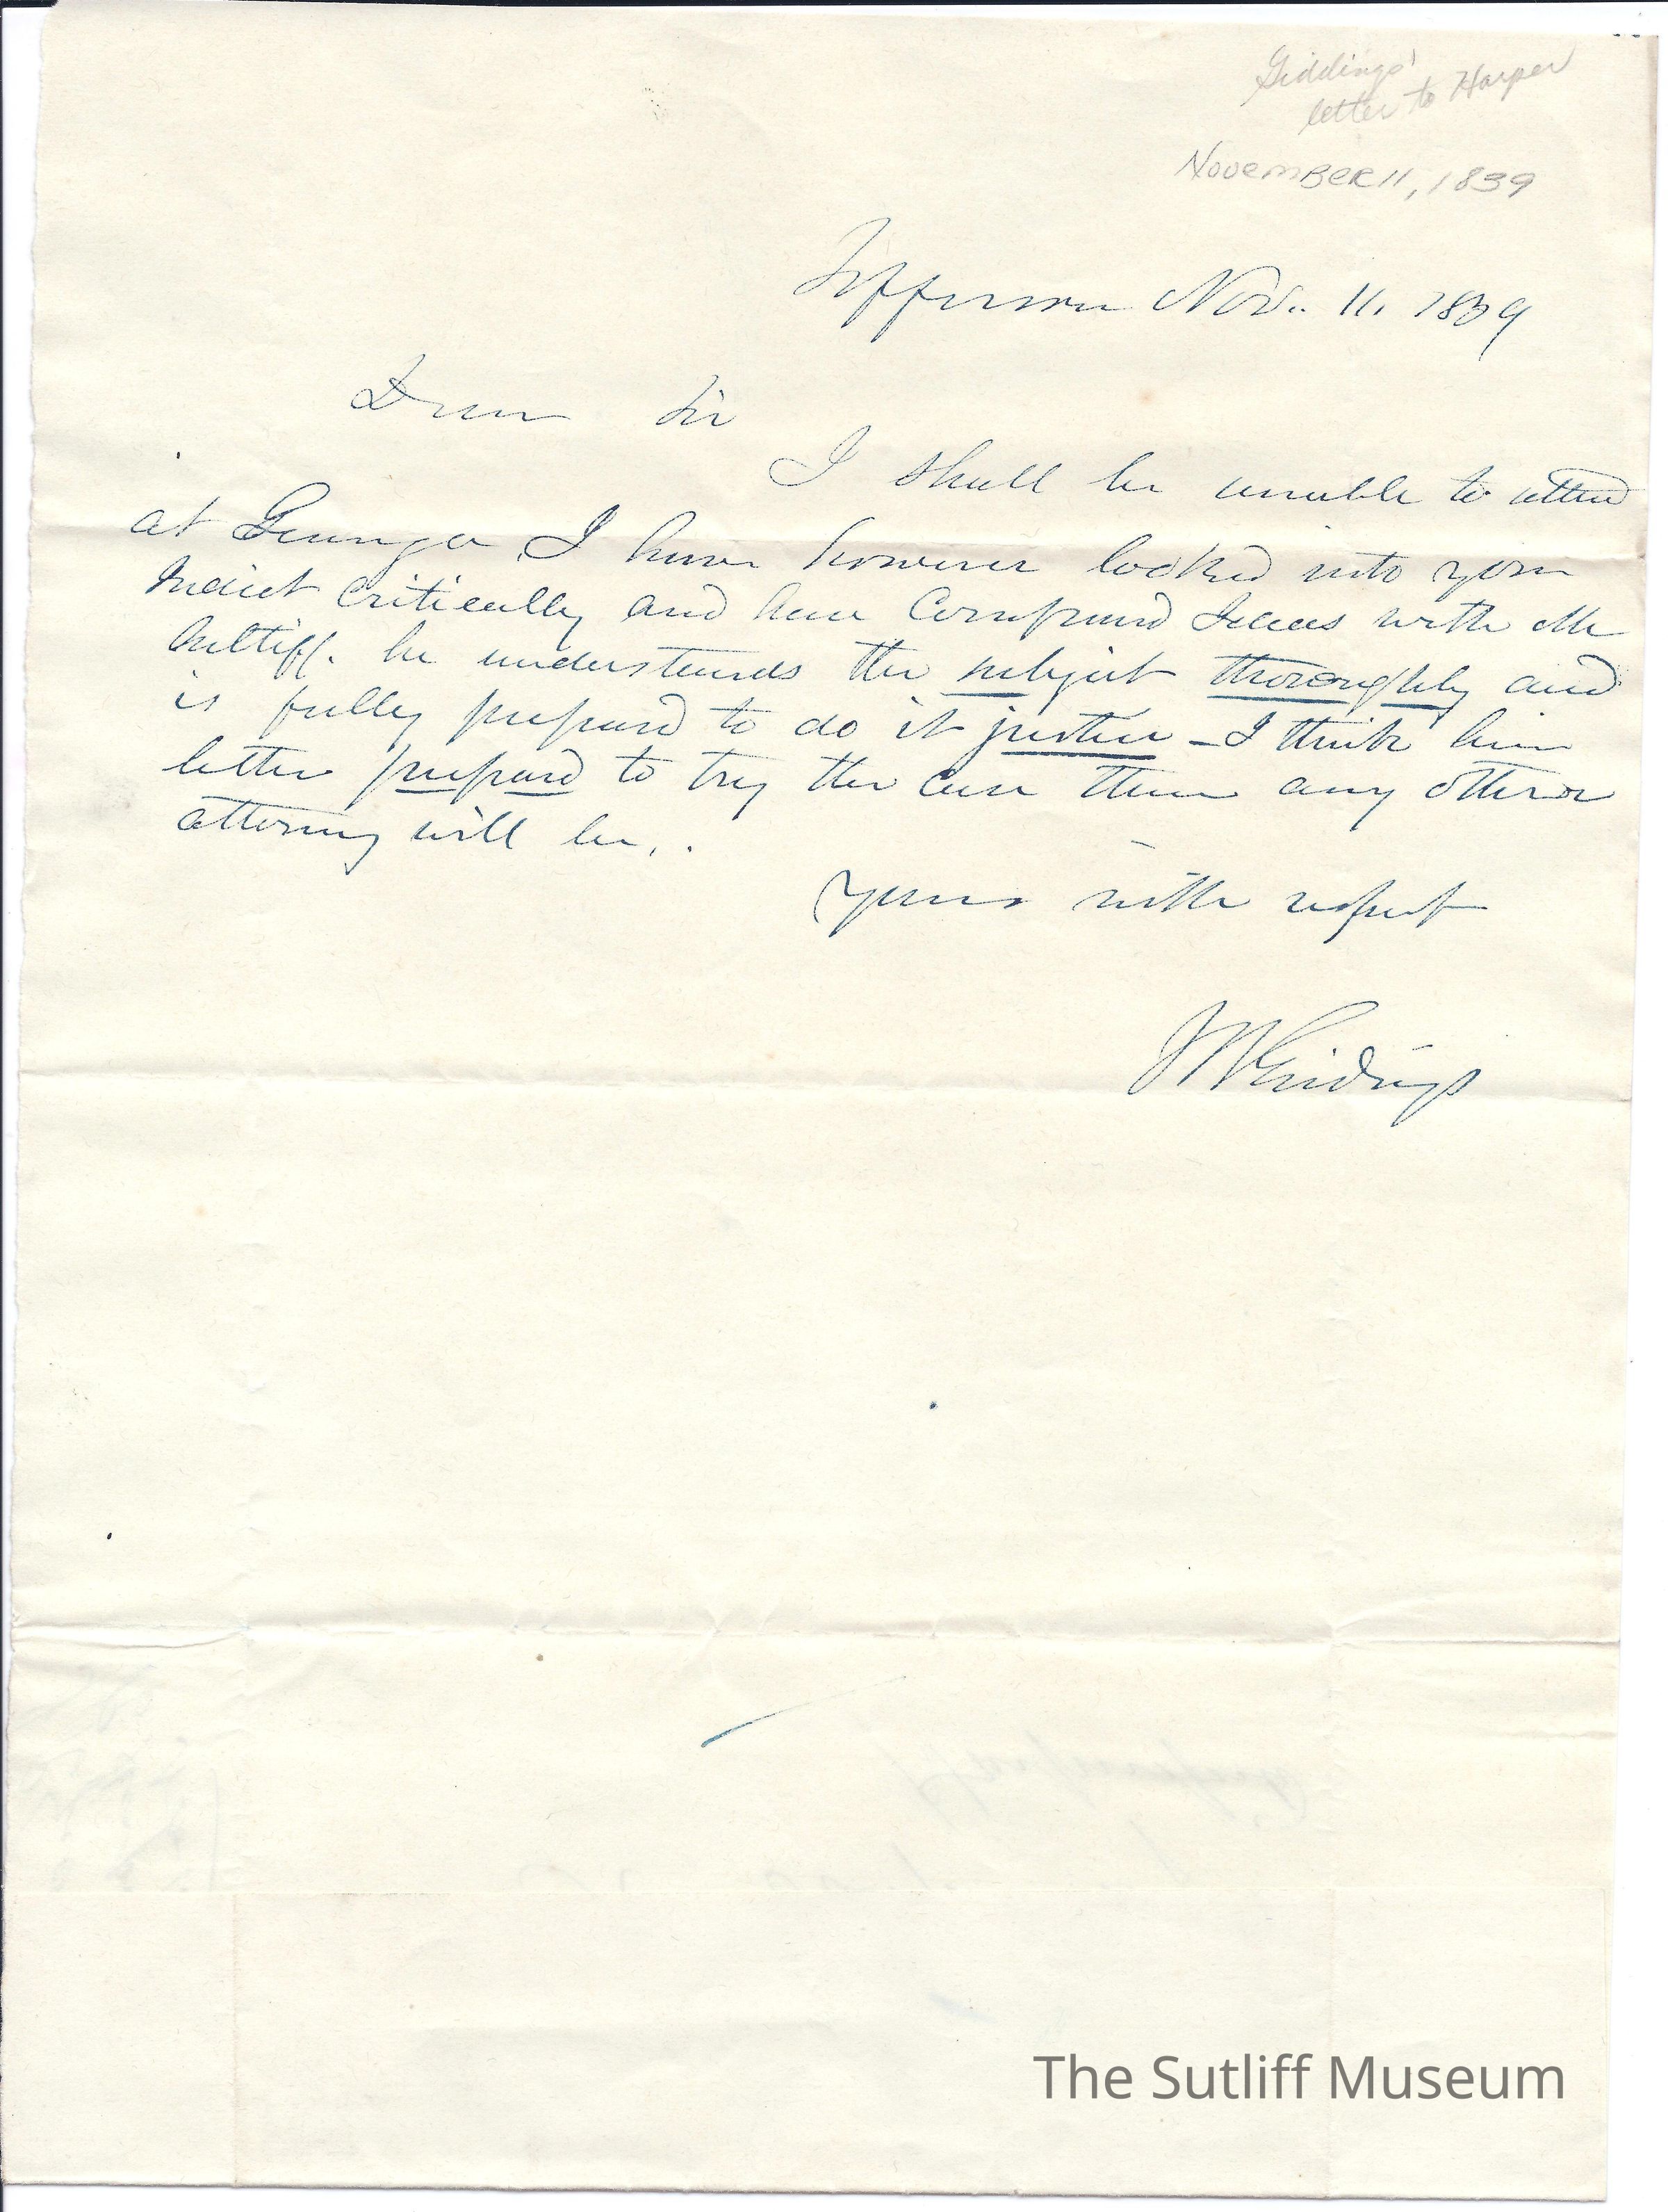 Giddings'
letter to Harper
NOVEMBER 11, 1839
Jefferson Nov. 11. 1839
Dear Sir
I shall be unable to attend
at Geauga. I have however looked into your
critically and have Compared Ideas with Mr
Sutliff. he understands the subject thoroughly and
is fully prepared to do it justice – I think him
better prepared to try the case than any other
attorney will be.
Yours with respect
J R Giddings
The Sutliff Museum